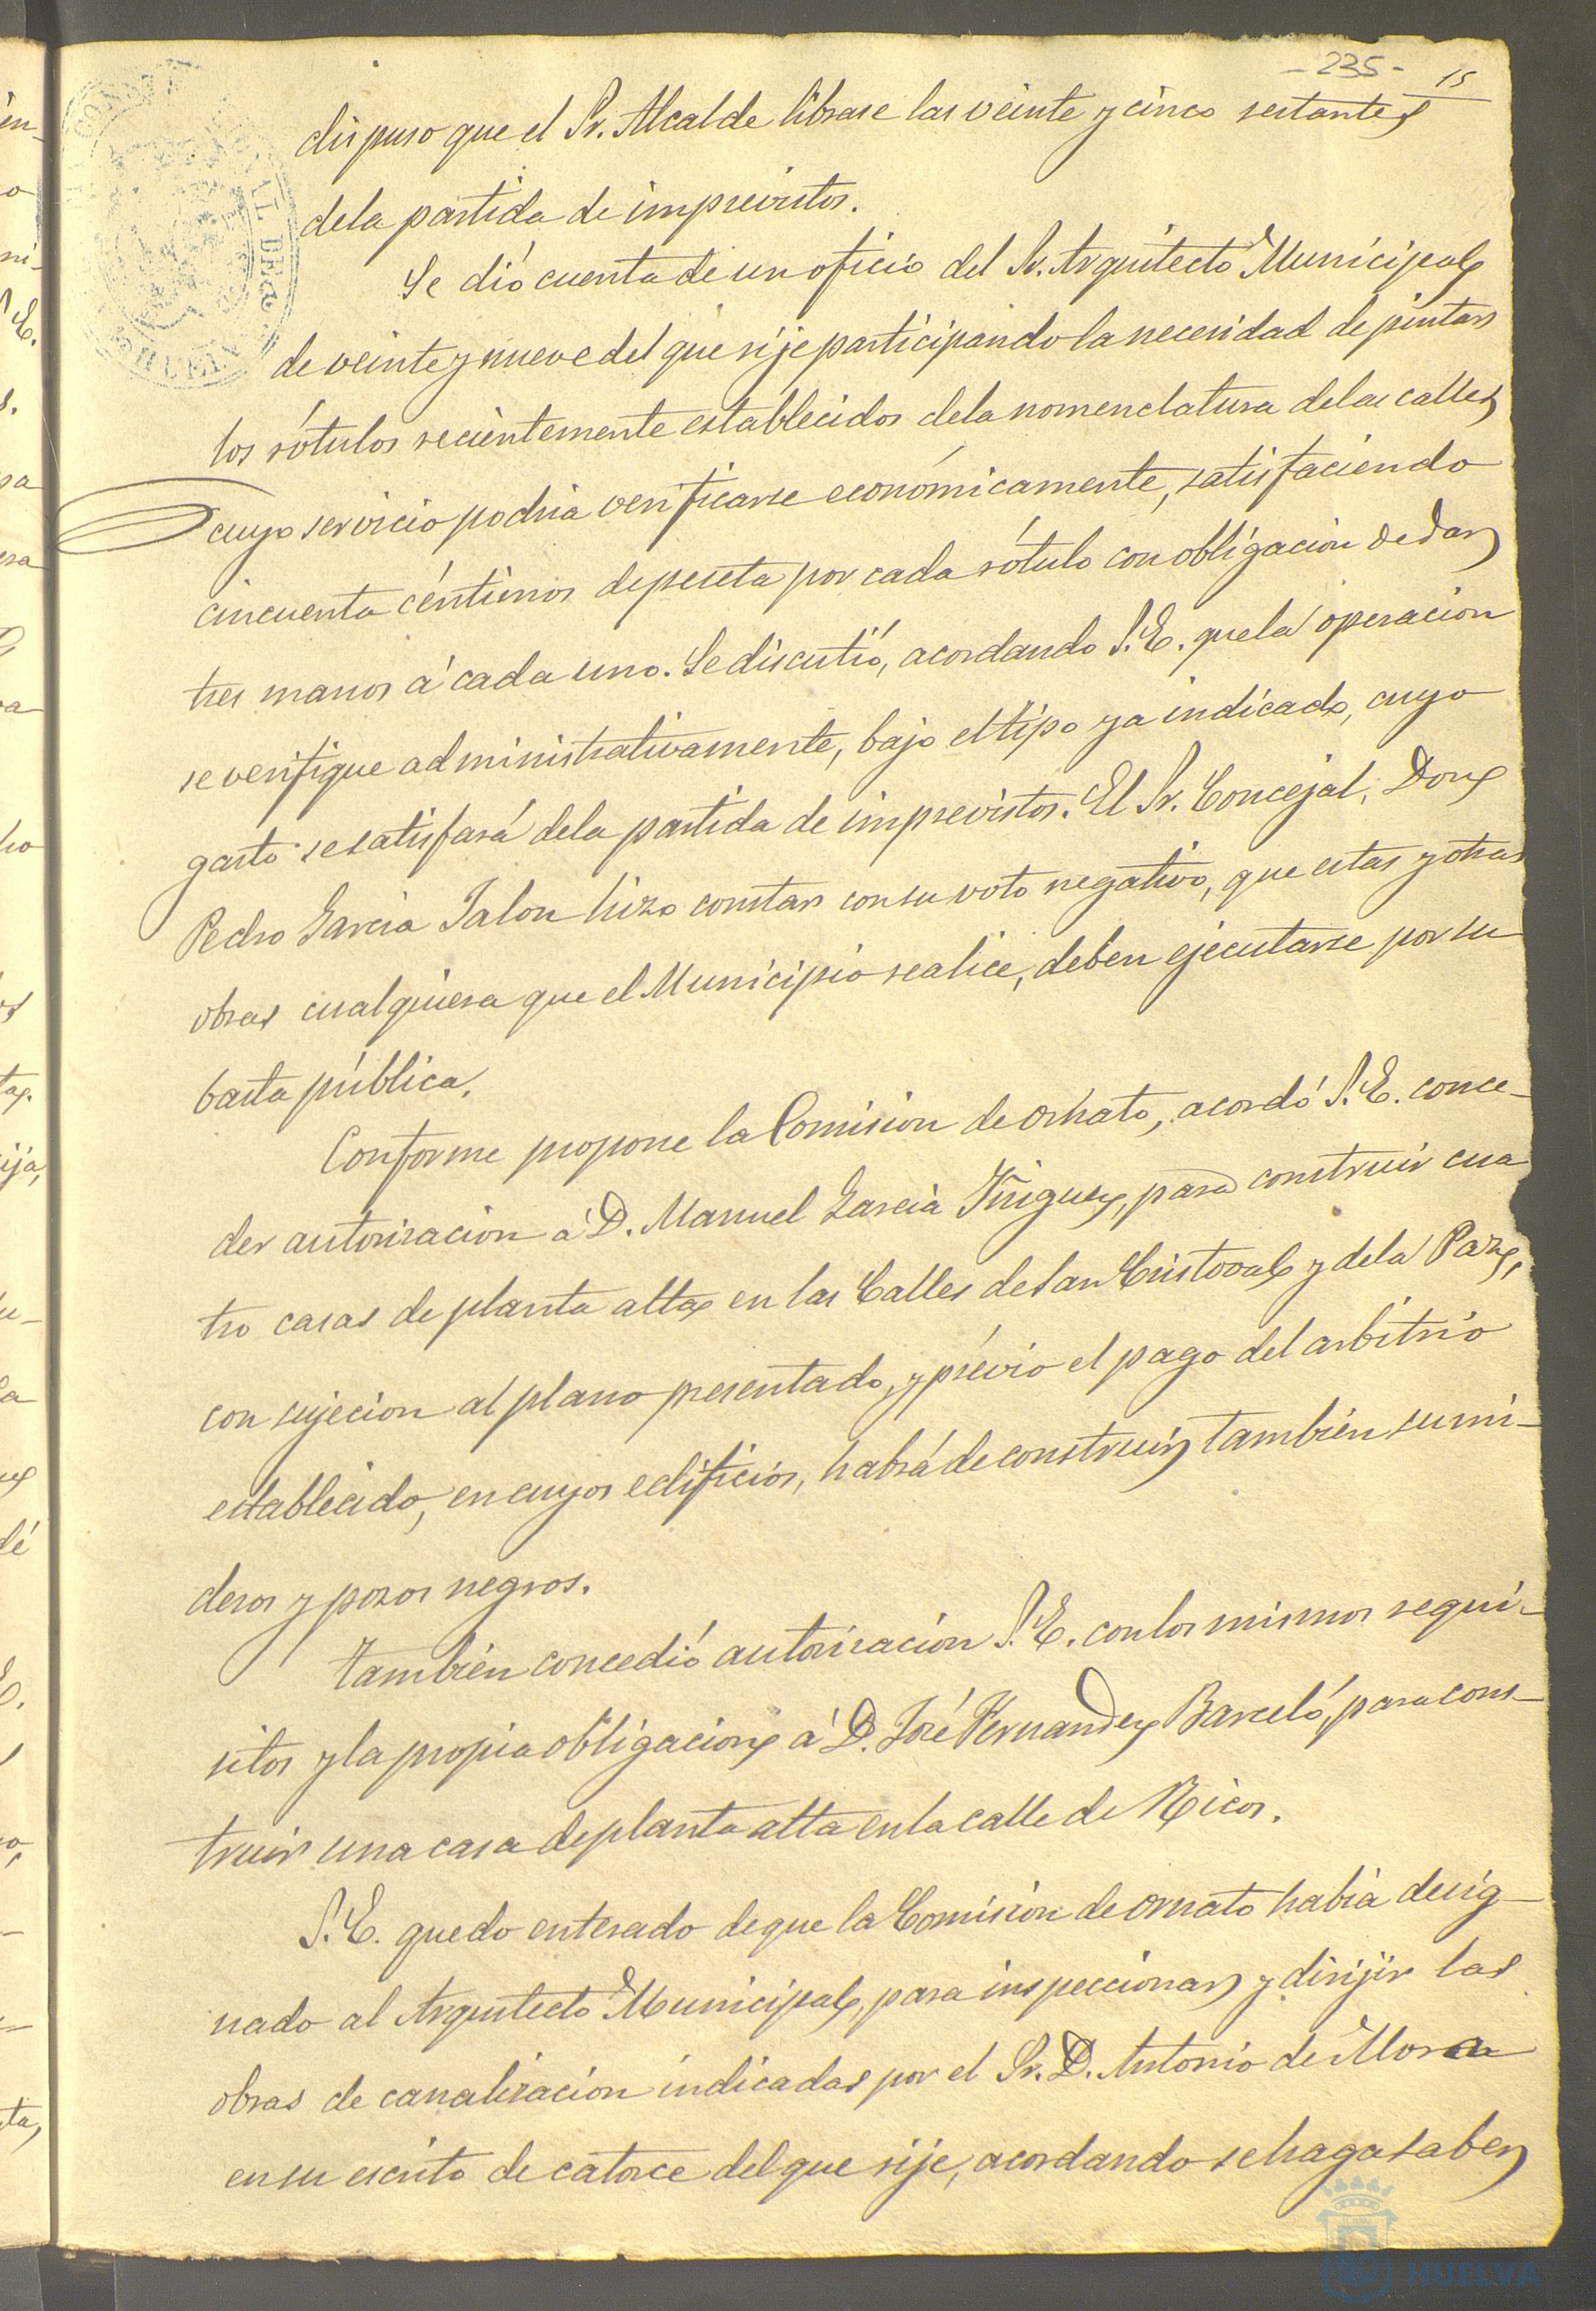 - 235 -
15
dispuso que el Sr. Alcalde librase las veinte y cinco restantes
de la partida de imprevistos.
Se dió cuenta de un oficio del Sr. Arquitecto Municipal
de veinte y nueve del que rije participando la necesidad de pintar
los rótulos recientemente establecidos de la nomenclatura de las calles
cuyo servicio podria verificarse económicamente, satisfaciendo
cincuenta céntimos de peseta por cada rótulo con obligacion de dar
tres manos á cada uno. Se discutió, acordando S.E. que la operacion
se verifique administrativamente, bajo el tipo ya indicado, cuyo
gasto se satisfará de la partida de imprevistos. El Sr. Concejal, Don
Pedro Garcia Jalon hizo constar con su voto negativo, que estas y otras
obras cualquiera que el Municipio realice, deben ejecutarse por su
basta pública.
Conforme propone la Comision de ornato, acordó S.E. conce-
der autorizacion á D. Manuel Garcia Iñiguez, para construir cua
tro casas de planta alta en las Calles de San Cristoval y de la Paz,
con sujecion al plano presentado, y prévio el pago del arbitrio
establecido, en cuyos edificios, habrá de construir tambien sumi-
deros y pozos negros.
Tambien concedió autorizacion S.E. con los mismos requi-
sitos y la propia obligacion á D. José Fernandez Barceló, para cons-
truir una casa de planta alta en la calle de Ricos.
S.E. quedo enterado de que la Comision de ornato habia desig-
nado al Arquitecto Municipal, para inspeccionar y dirijir las
obras de canalizacion indicadas por el Sr. D. Antonio de Mora
en su escrito de catorce del que rije, acordando se haga saber
HUELVA